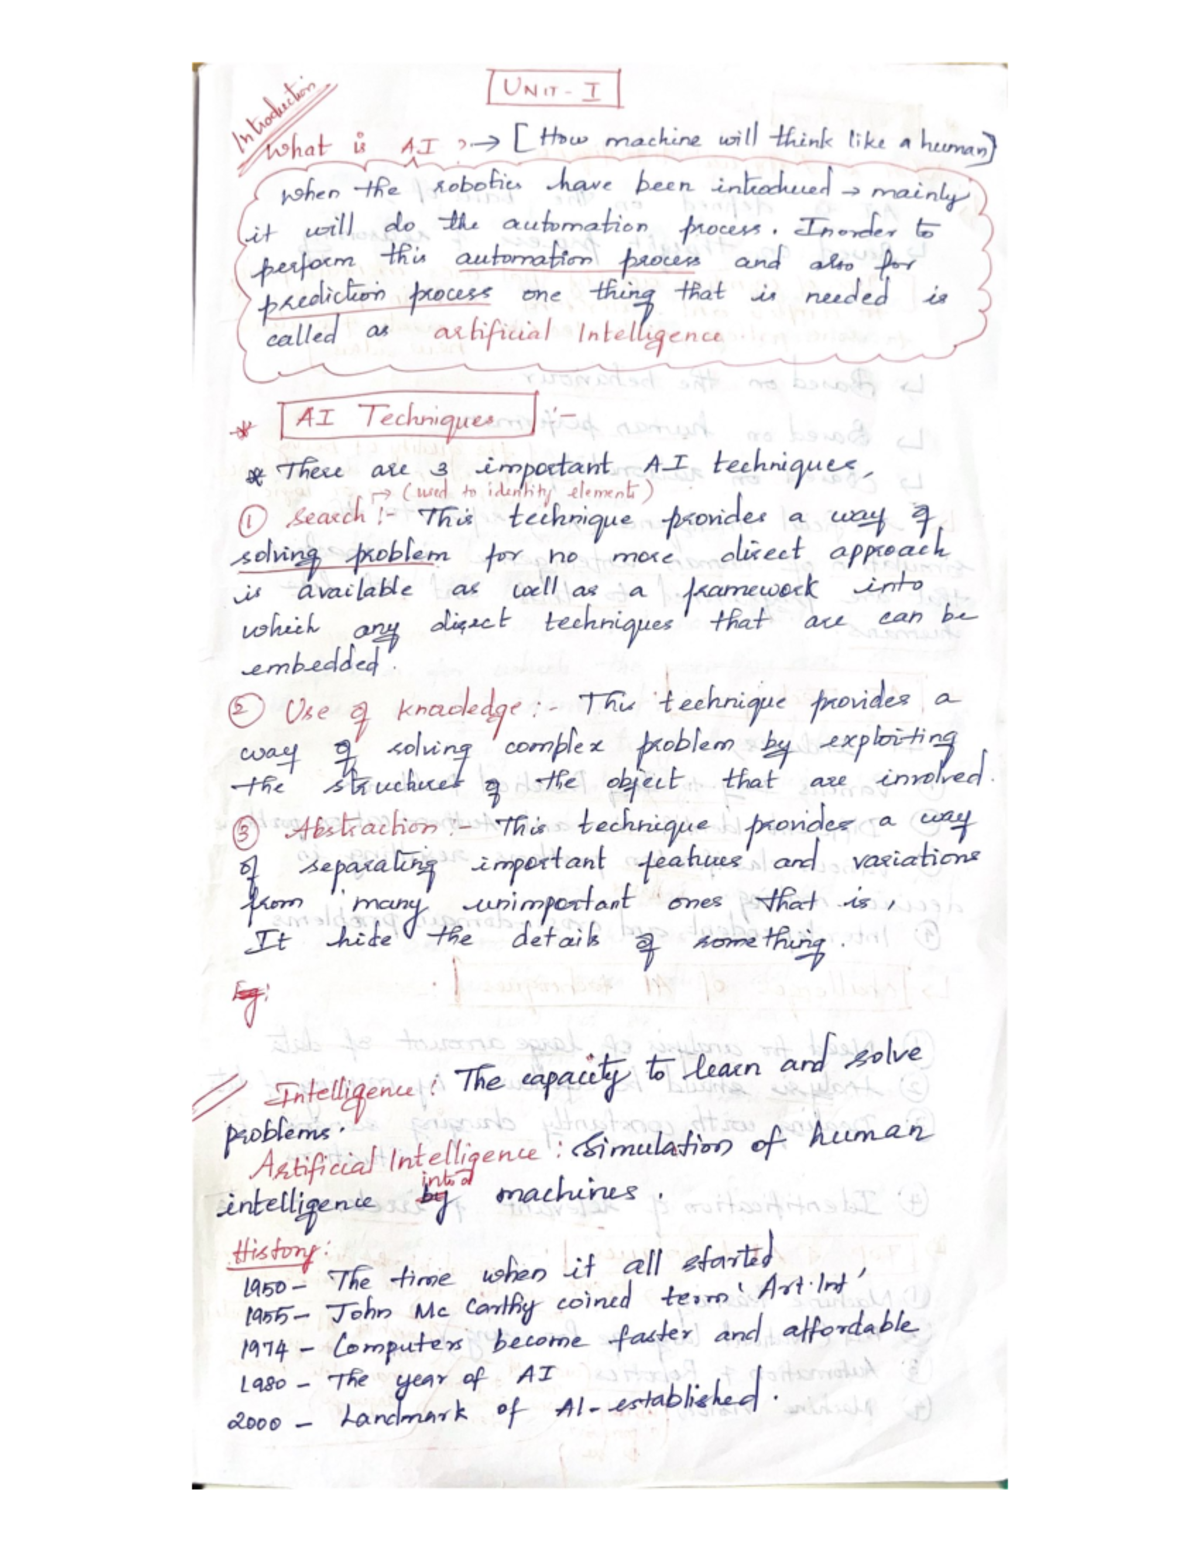 UNIT - I
Introduction
What is AI ? → [How machine will think like a human]
when the robotics have been introduced → mainly
it will do the automation process. Inorder to
perform this automation process and also for
prediction process one thing that is needed is
called as artificial Intelligence
* AI Techniques :-
* There are 3 important AI techniques,
→ (used to identity elements)
① Search :- This technique provides a way of
solving problem for no more direct approach
is available as well as a framework into
which any direct techniques that are can be
embedded.
② Use of knowledge :- This technique provides a
way of solving complex problem by exploiting
the structures of the object that are involved.
③ Abstraction :- This technique provides a way
of separating important features and variations
from many unimportant ones that is,
It hide the details of something.
Eg:
Intelligence : The capacity to learn and solve
problems.
Artificial Intelligence : Simulation of human
into a
intelligence by machines.
History:
1950 - The time when it all started
1955 - John Mc Carthy coined term 'Art.Int'
1974 - Computers become faster and affordable
1980 - The year of AI
2000 - Landmark of AI-established.